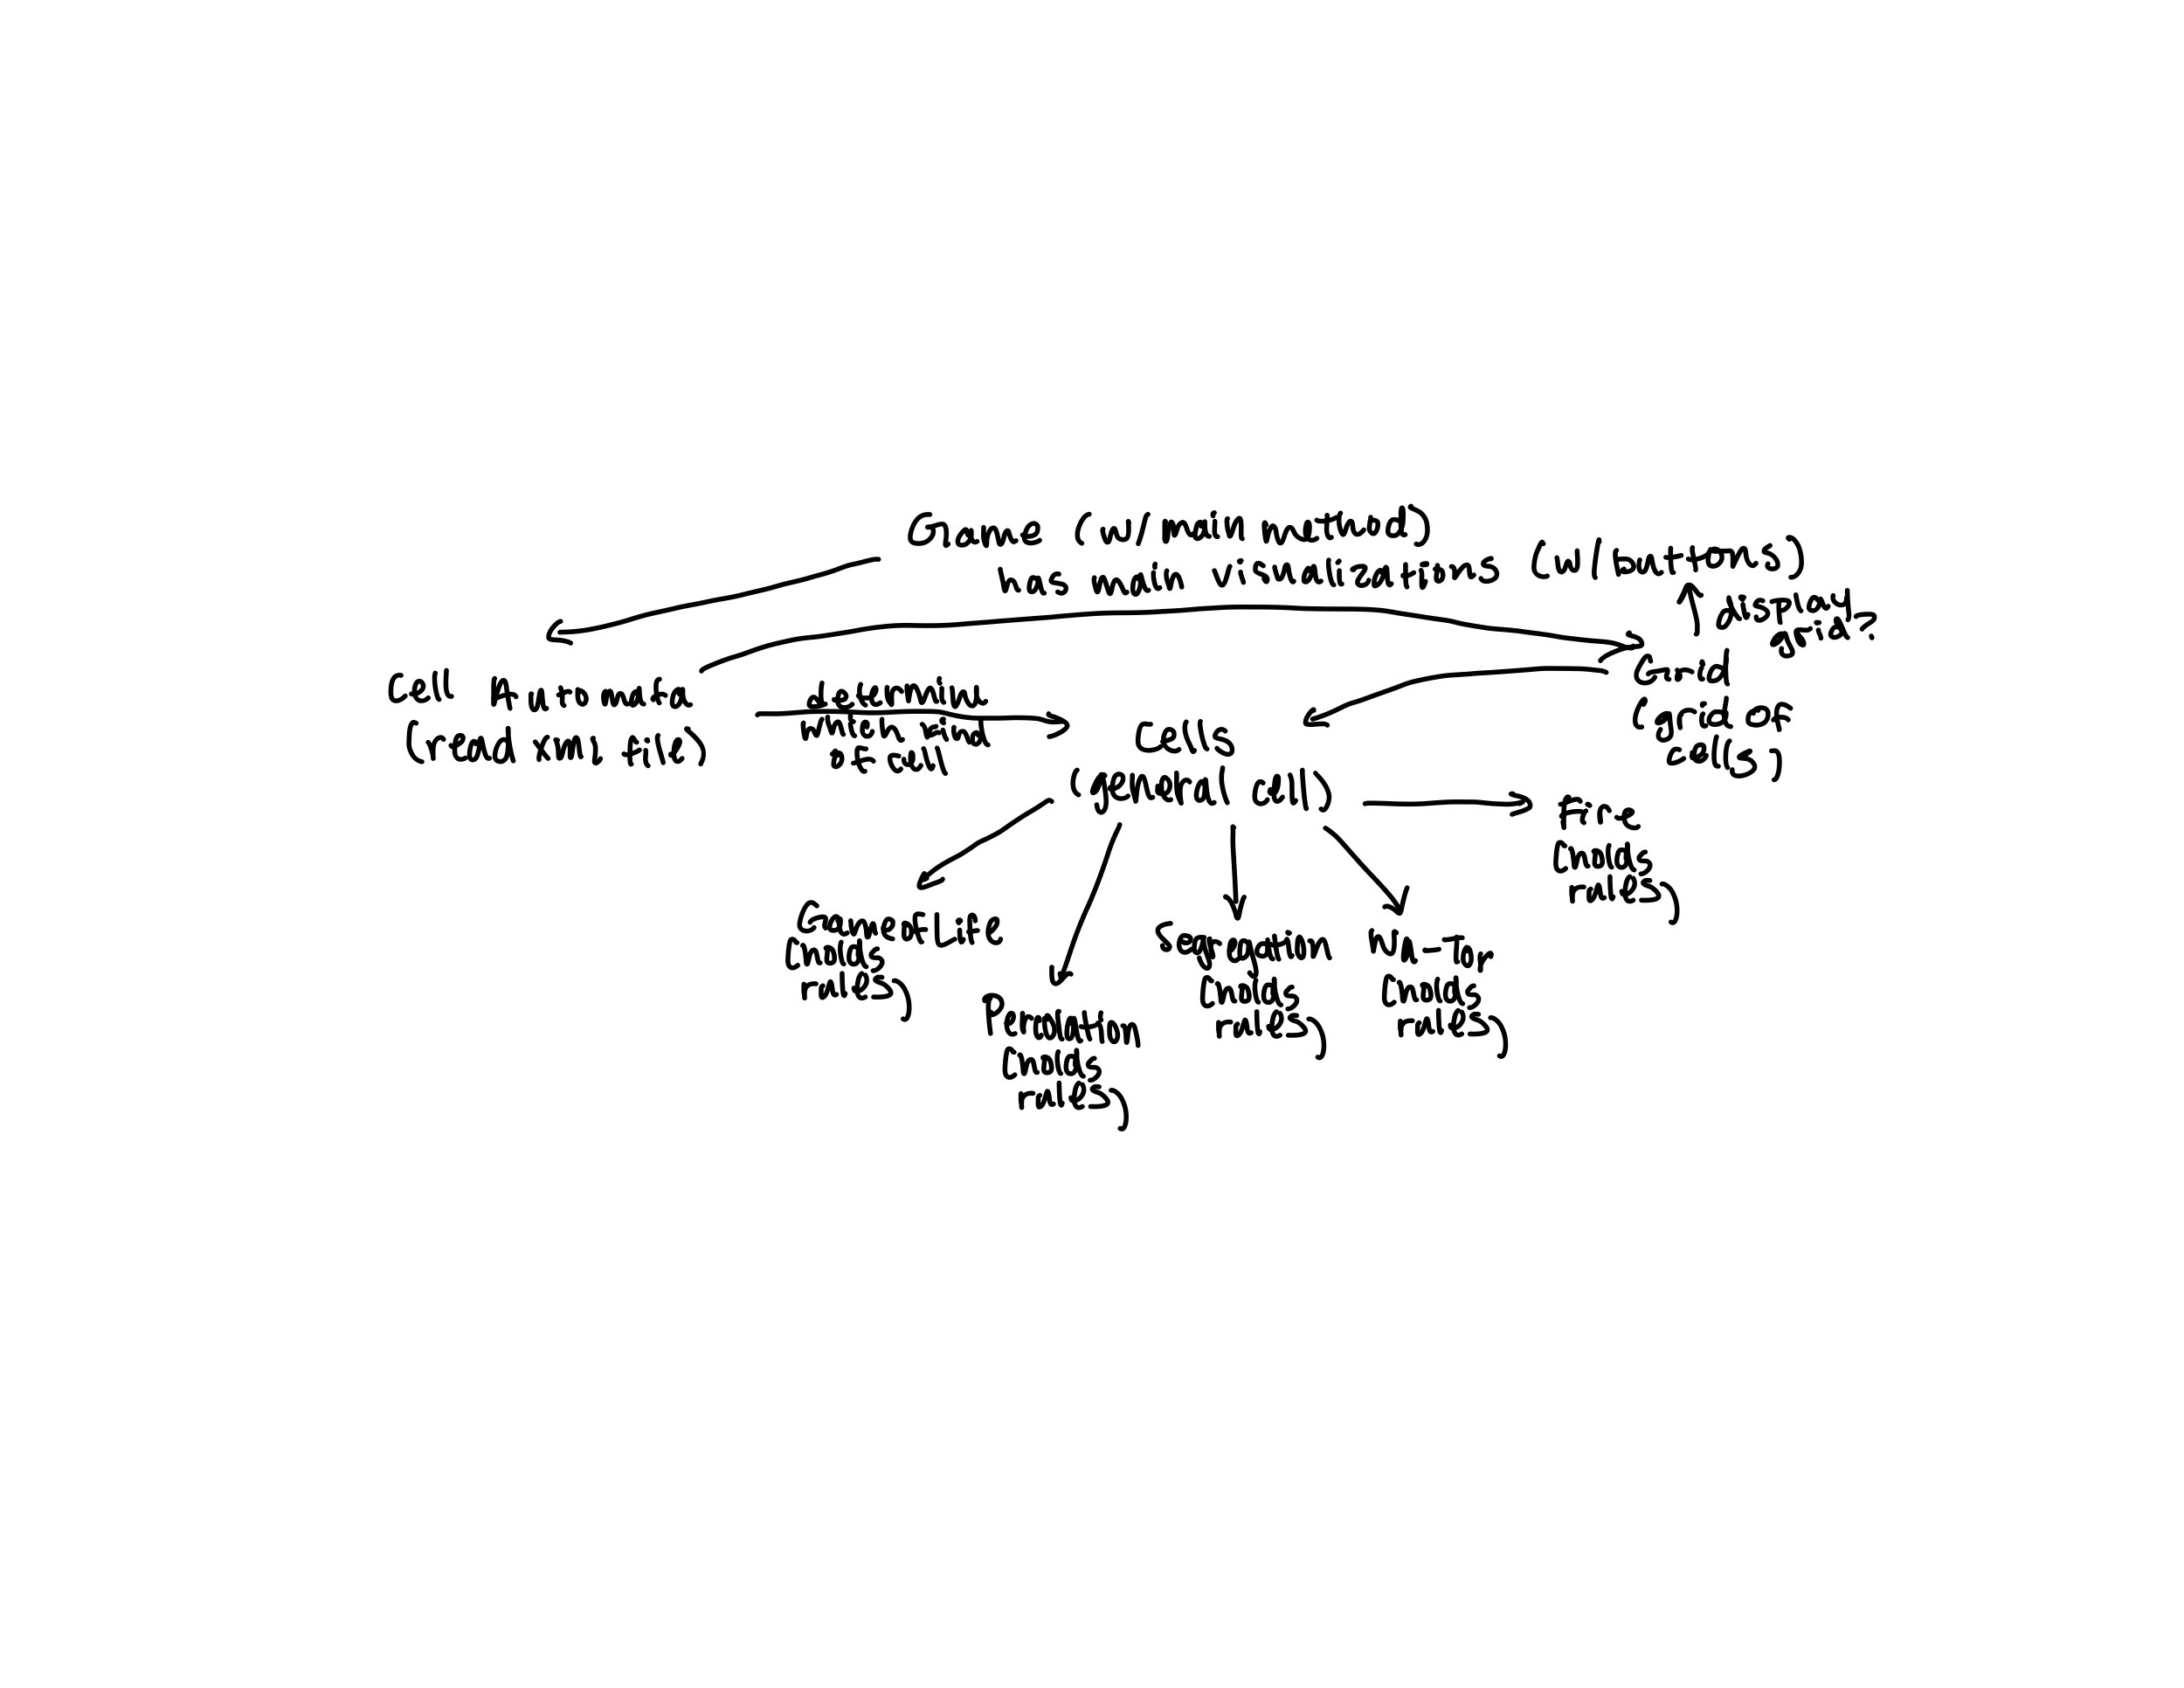 Game (w/ main method)
has main visualizations (w/ buttons)
displays
grid
Cell Automata
(read xml file)
determine
which kind
to call
Grid
(grid of
cells)
cells
(general cell)
Fire
(holds
rules)
GameofLife
(holds
rules)
Percolation
(holds
rules)
Segregation
(holds
rules)
Wa-Tor
(holds
rules)